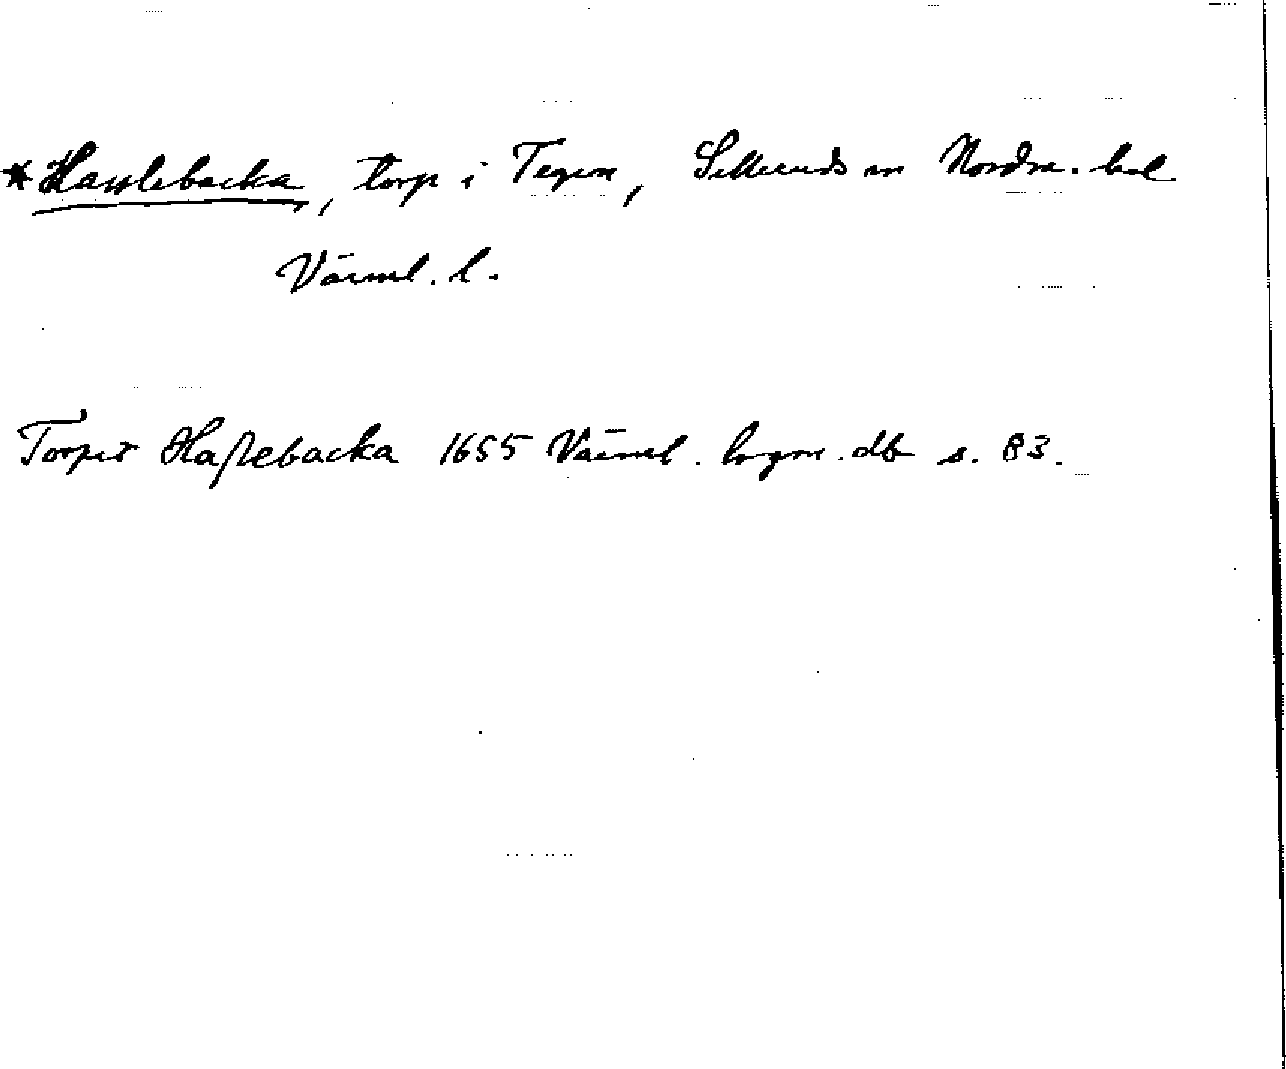 *Hasslebacka, torp i Tegen, Sillerud sn Nordm. hd
Värml. l.
Torpet Haßlebacka 1655 Värml. lagm. db s. 83.